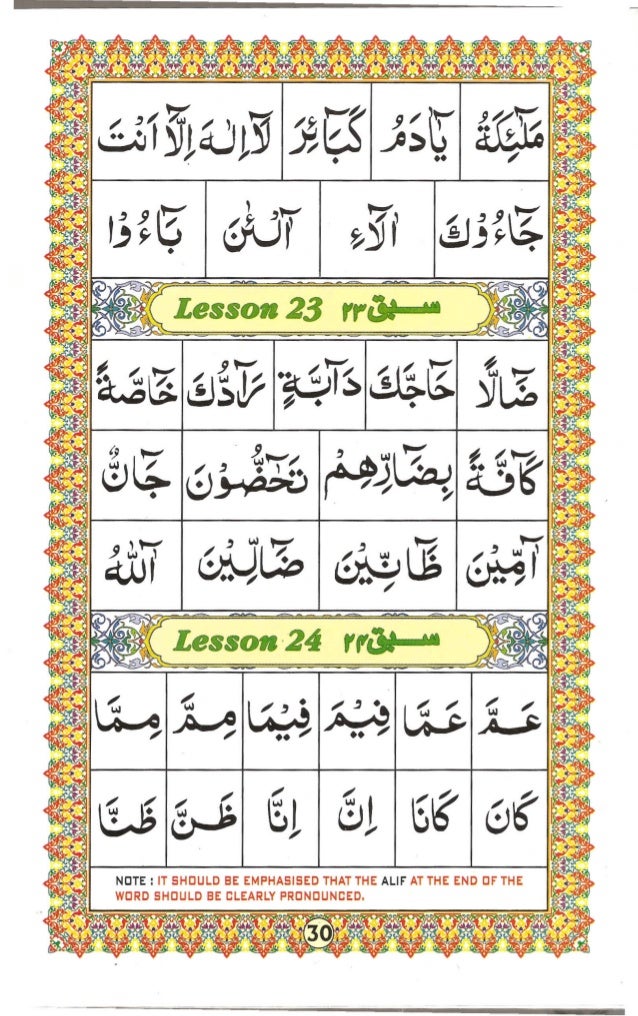 مَلٰٓئِكَةُ يٰٓاٰدَمُ كَبَآئِرَ لَآ اِلٰهَ اِلَّآ اَنْتَ
جَآءُوْكَ اٰلَآءِ آلْـٰٔنَ بَآءُوْا
Lesson 23 سبق ۲۳
ضَآلًّا حَآجَّكَ دَآبَّةٍ رَآدُّكَ خَآصَّةً
كَآفَّةً بِضَآرِّهِمْ تَحٰٓضُّوْنَ جَآنٌّ
آٰمِّيْنَ ظَآنِّيْنَ ضَآلِّيْنَ آللّٰهُ
Lesson 24 سبق ۲۴
عَمَّ عَمَّا فِيْمَ فِيْمَا مِمَّ مِمَّا
كَانَ كَانَا اِنَّ اِنَّا ظَنَّ ظَنَّا
NOTE : IT SHOULD BE EMPHASISED THAT THE ALIF AT THE END OF THE
WORD SHOULD BE CLEARLY PRONOUNCED.
30